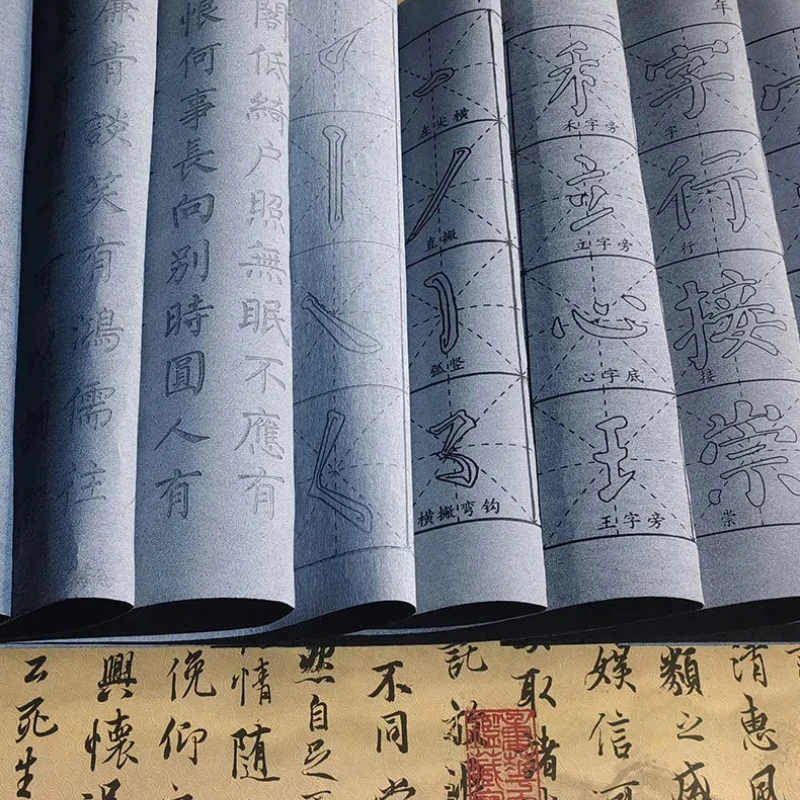 年
字
字
行
行
接
接
崇
崇
禾字旁
立
立字旁
心
心字底
王字旁
左尖横
直撇
弧竖
横撇弯钩
閣低綺户照無眠不應有
恨何事長向别時圓人有
青談笑有鴻儒往
清惠風
類之盛
娱信可
取諸
託
不同
然自足
情隨
俛仰
興懷
死生